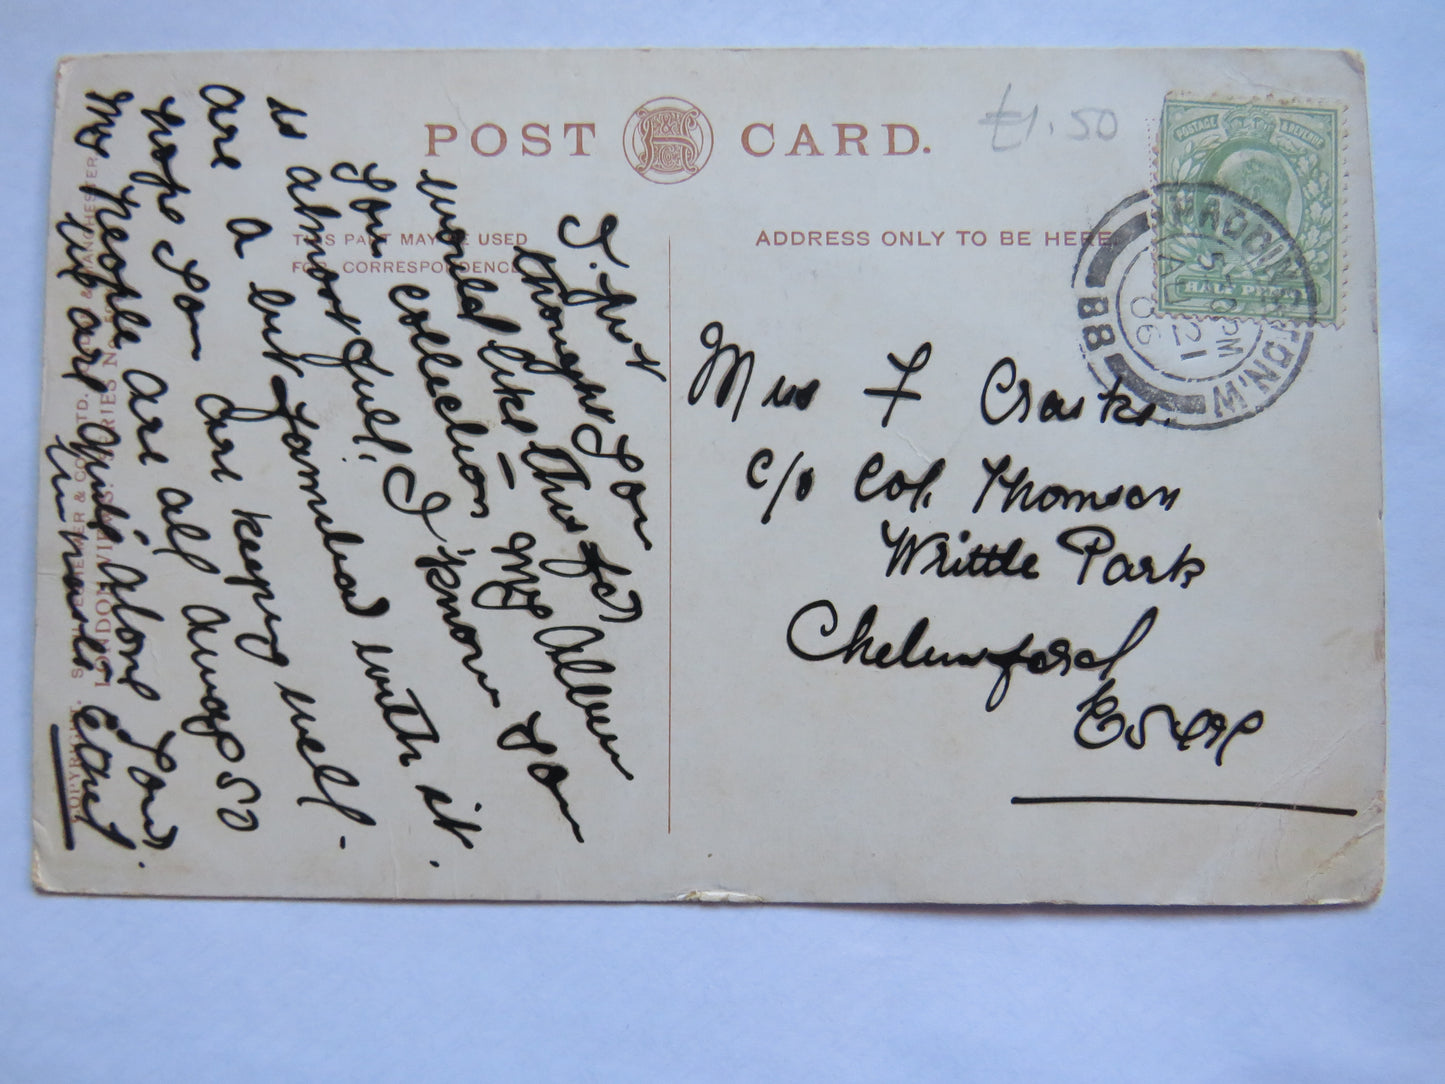 POST CARD.
£1.50
POSTAGE & REVENUE
HALF PENNY
PADDINGTON.W
5 30PM
21
06
88
THIS PART MAY BE USED
FOR CORRESPONDENCE
ADDRESS ONLY TO BE HERE
I just
thought you
would like this for
your collection – My album
is almost full. I know you
are a bit familiar with it.
hope you are keeping well –
My people are all away so
we are quite alone
in house Ethel
Miss F
c/o Col. Thomson
Writtle Park
Chelmsford
Essex
COPYRIGHT.
LONDON VIEWS. SERIES No.
MANCHESTER.